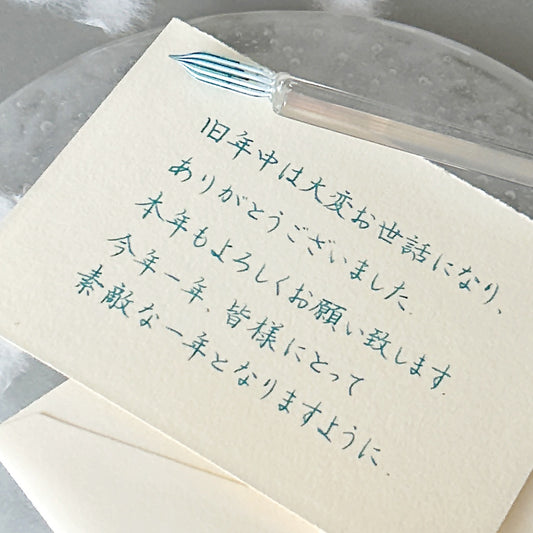 旧年中は大変お世話になり、
ありがとうございました.
本年もよろしくお願い致します.
今年一年、皆様にとって
素敵な一年となりますように.